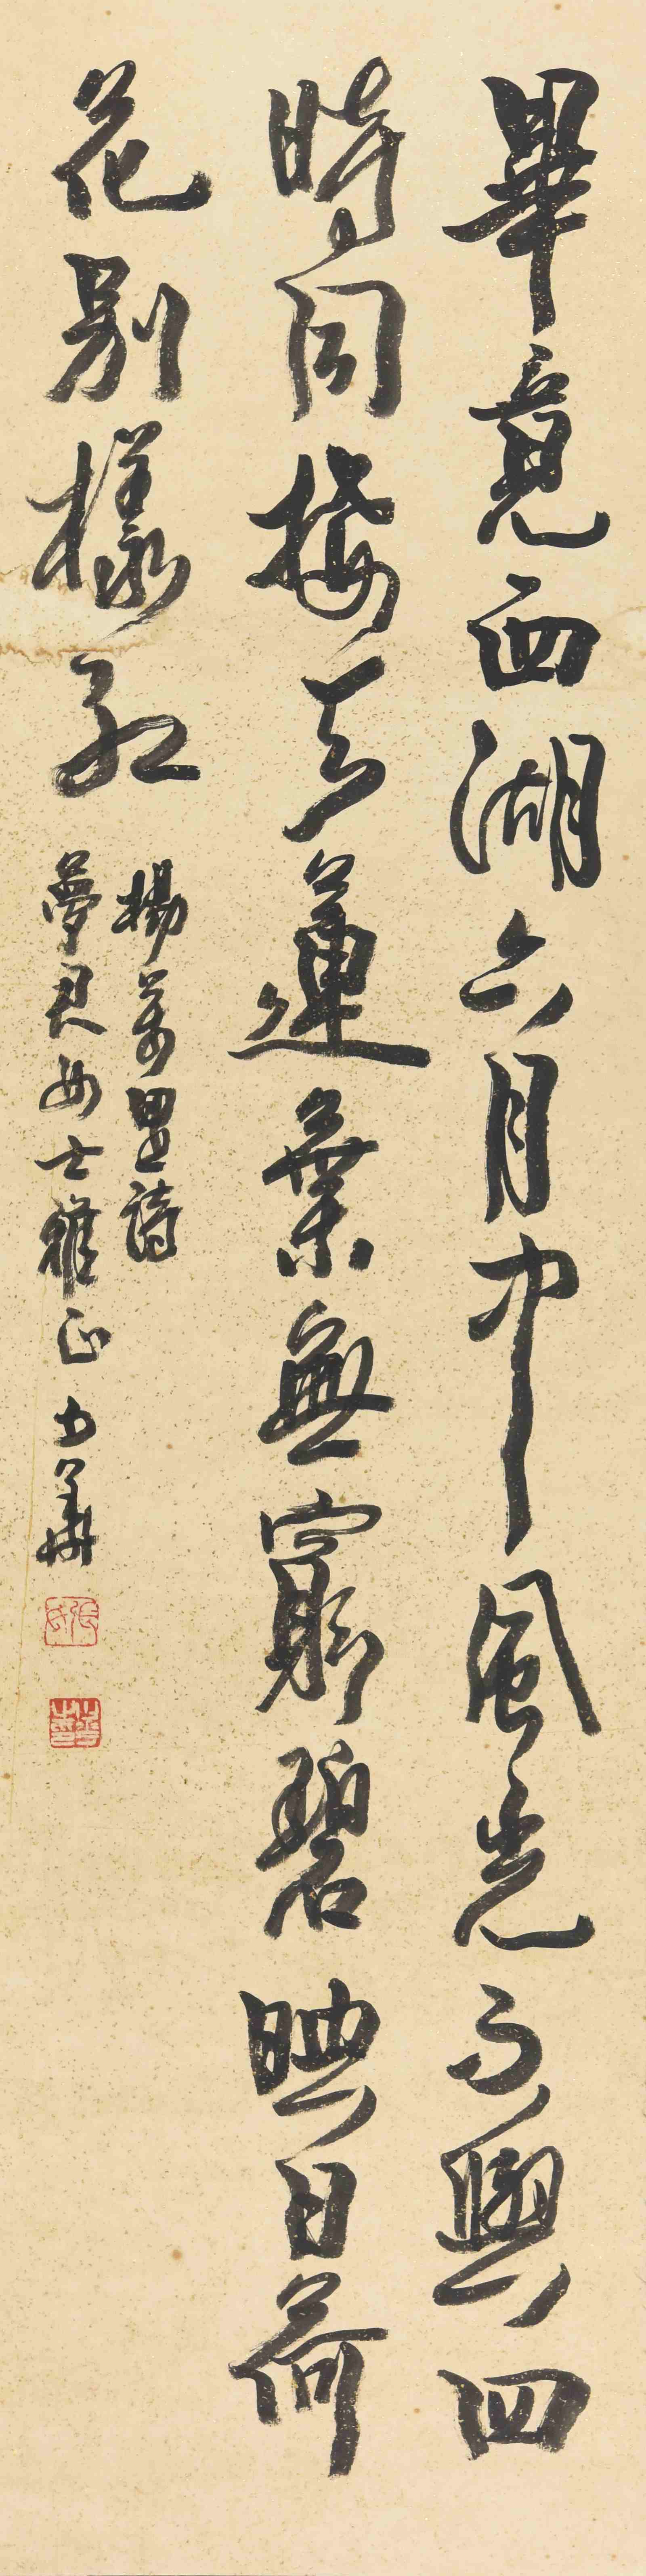 畢竟西湖六月中風光不與四
時同接天蓮葉無窮碧映日荷
花別樣紅
楊萬里詩
夢君女士雅正